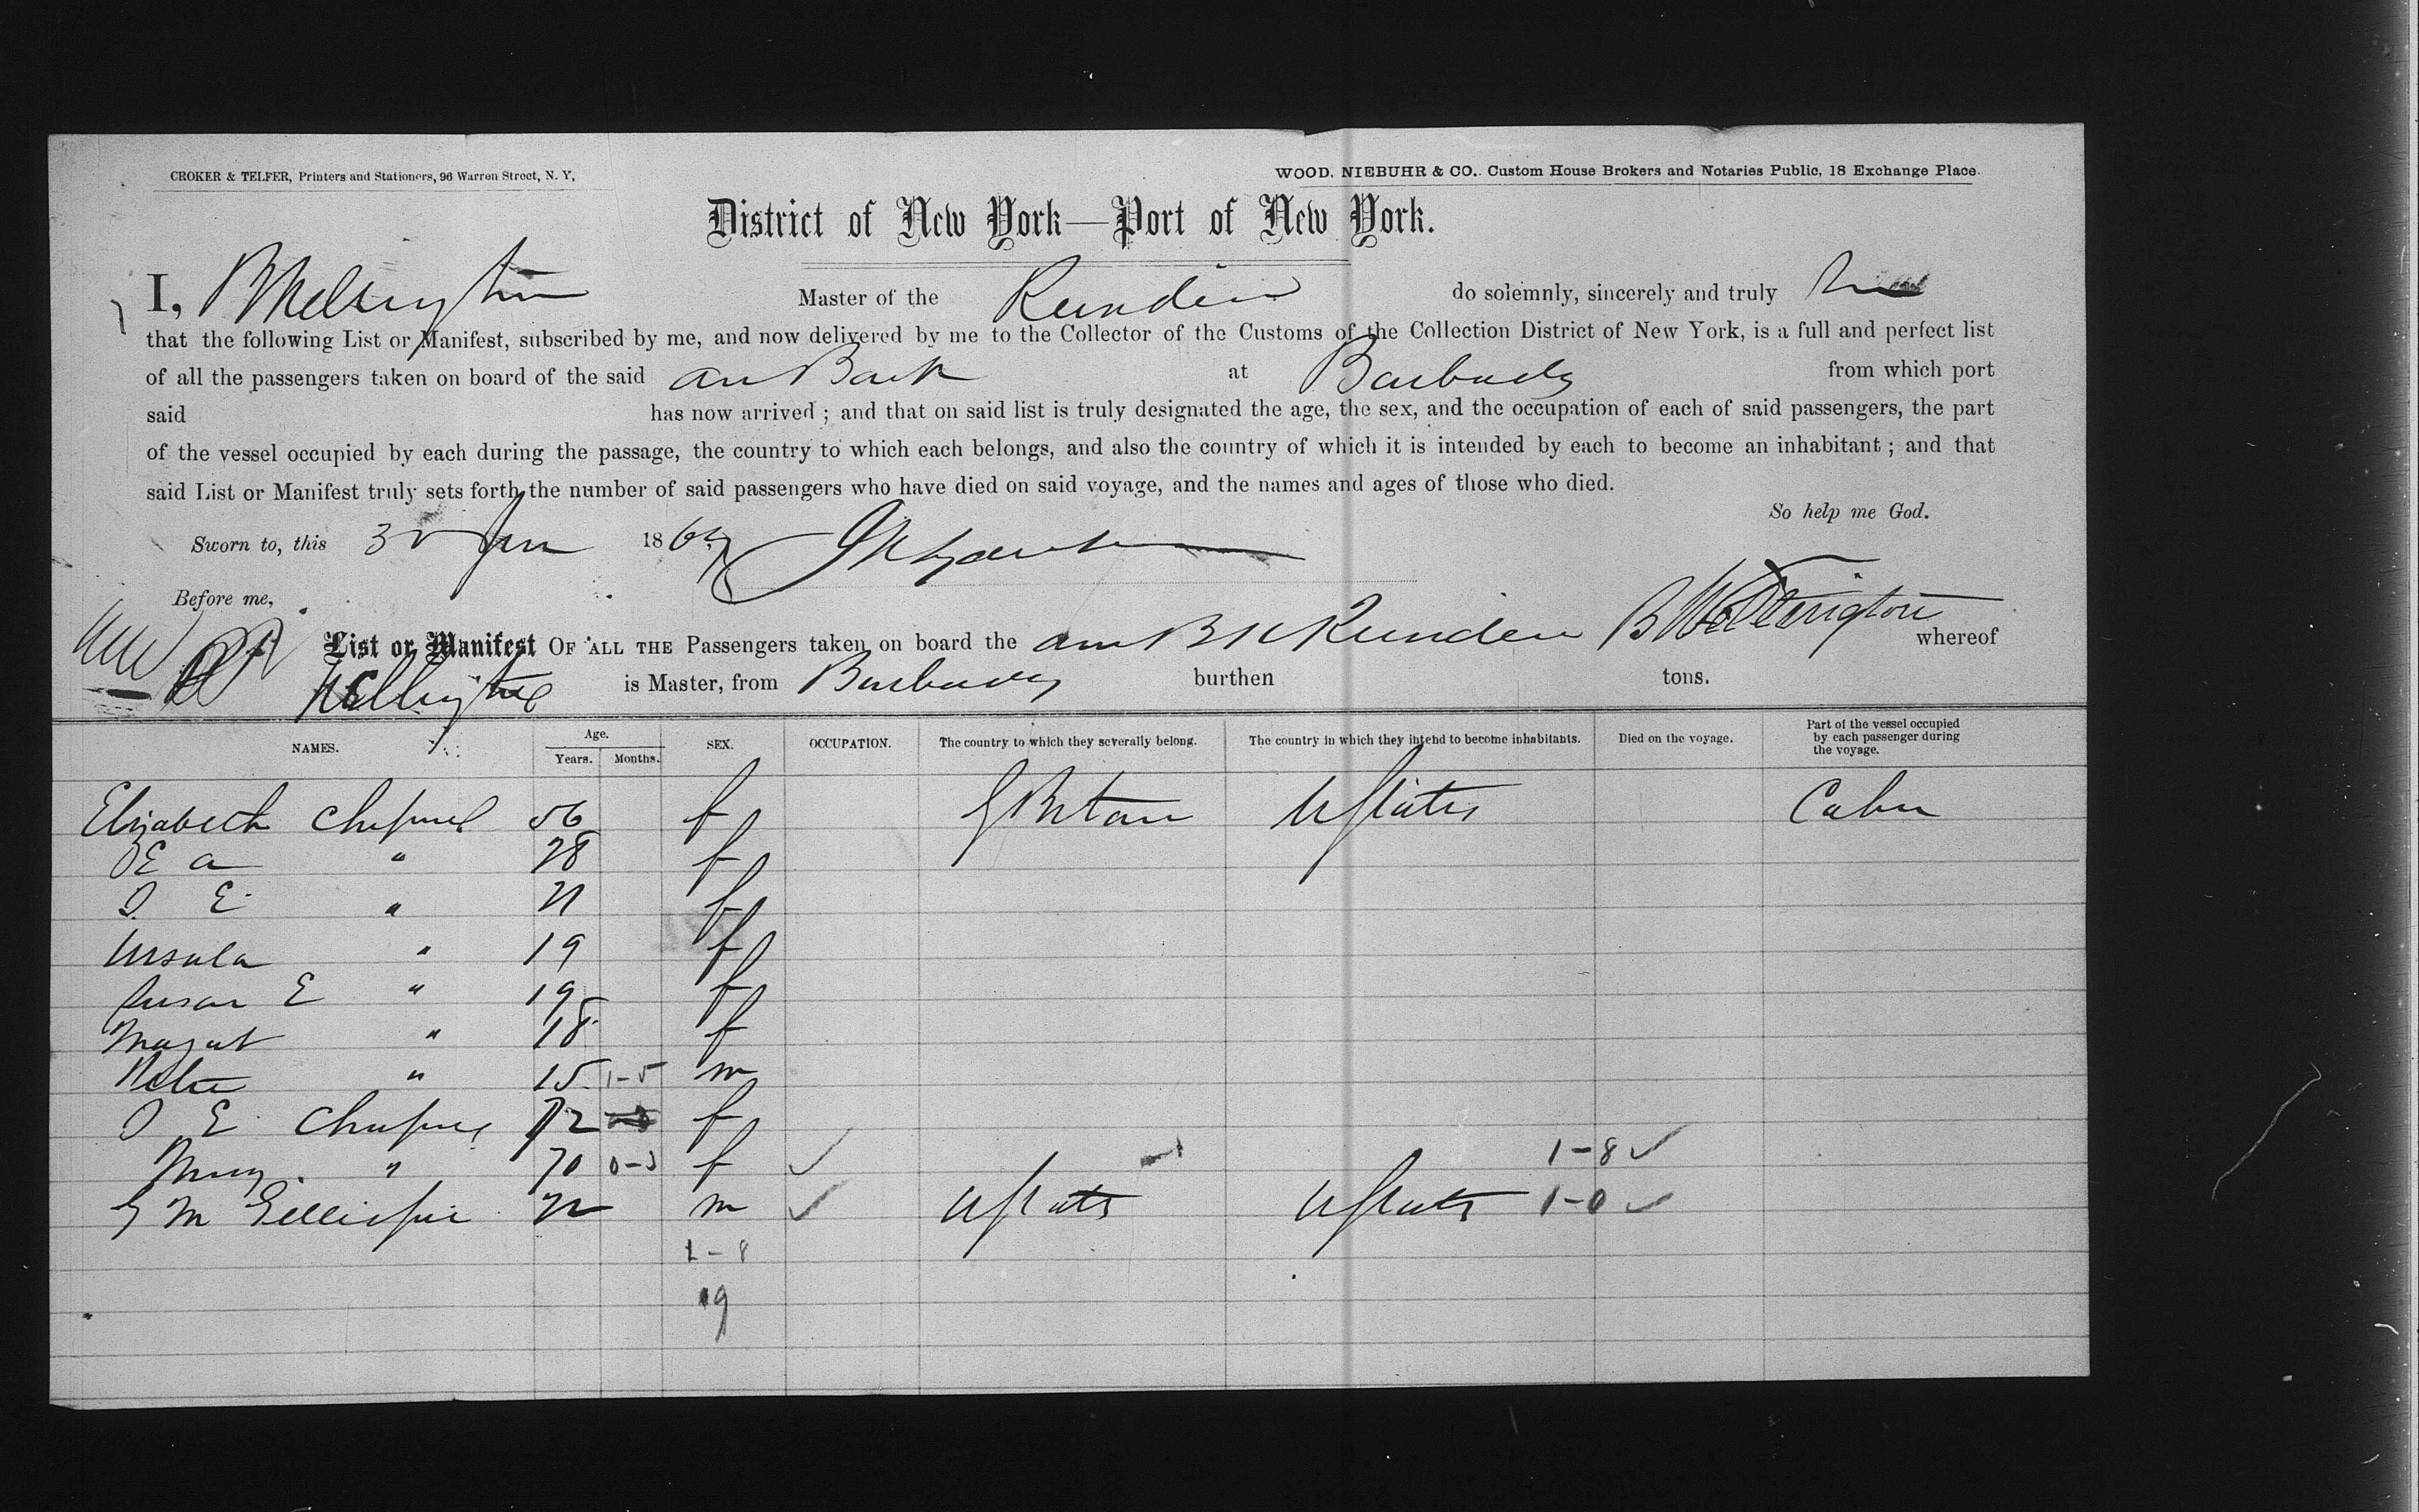 CROKER & TELFER, Printers and Stationers, 96 Warren Street, N. Y,
WOOD, NIEBUHR & CO., Custom House Brokers and Notaries Public, 18 Exchange Place.
District of New York—Port of New York.
I, B Wellington Master of the do solemnly, sincerely and truly
that the following List or Manifest, subscribed by me, and now delivered by me to the Collector of the Customs of the Collection District of New York, is a full and perfect list
of all the passengers taken on board of the said am Bark at Barbados from which port
said has now arrived ; and that on said list is truly designated the age, the sex, and the occupation of each of said passengers, the part
of the vessel occupied by each during the passage, the country to which each belongs, and also the country of which it is intended by each to become an inhabitant ; and that
said List or Manifest truly sets forth the number of said passengers who have died on said voyage, and the names and ages of those who died.
So help me God.
Sworn to, this 186
Before me,
List or Manifest OF ALL THE Passengers taken on board the am Bk B Wetherington whereof
is Master, from Barbados burthen tons.
NAMES. Age. Years. Months. SEX. OCCUPATION. The country to which they severally belong. The country in which they intend to become inhabitants. Died on the voyage. Part of the vessel occupied by each passenger during the voyage.
Elizabeth 56 f G Britain U States Cabin
E a " 28 f
E " 21 f
Ursula " 19 f
Susan E " 19 f
Margat " 18 f
" 15 1-5 m
E f
Mary " f 1-8 ✓
G M Gillispie m ✓ U States U States 1-0 ✓
1-8
19